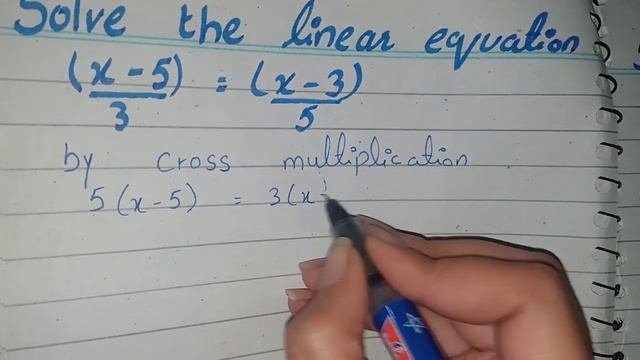 Solve the linear equation
(x - 5)/3 = (x - 3)/5
by cross multiplication
5(x-5) = 3(x